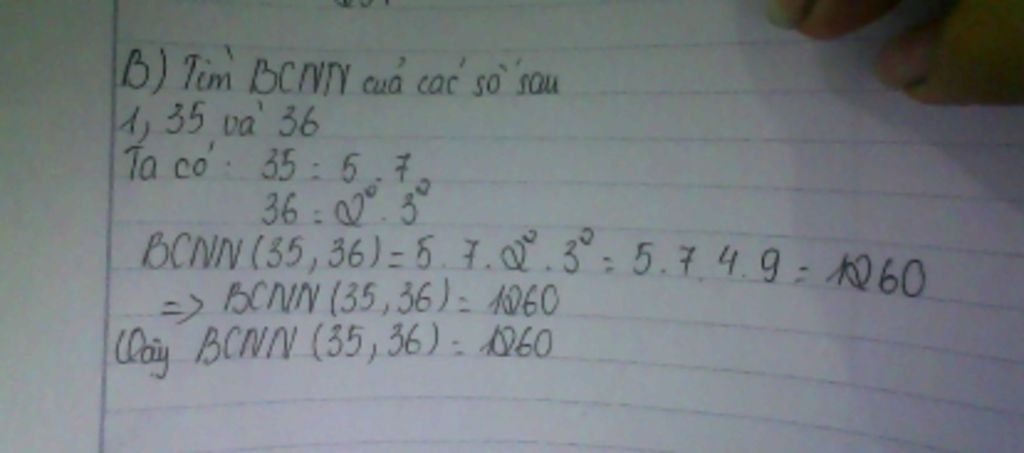 B) Tìm BCNN cuả các số sau
1, 35 và 36
Ta có: 35 = 5 . 7
36 = 2² . 3²
BCNN (35, 36) = 5 . 7 . 2² . 3² = 5 . 7 . 4 . 9 = 1260
=> BCNN (35, 36) = 1260
Vậy BCNN (35, 36) = 1260